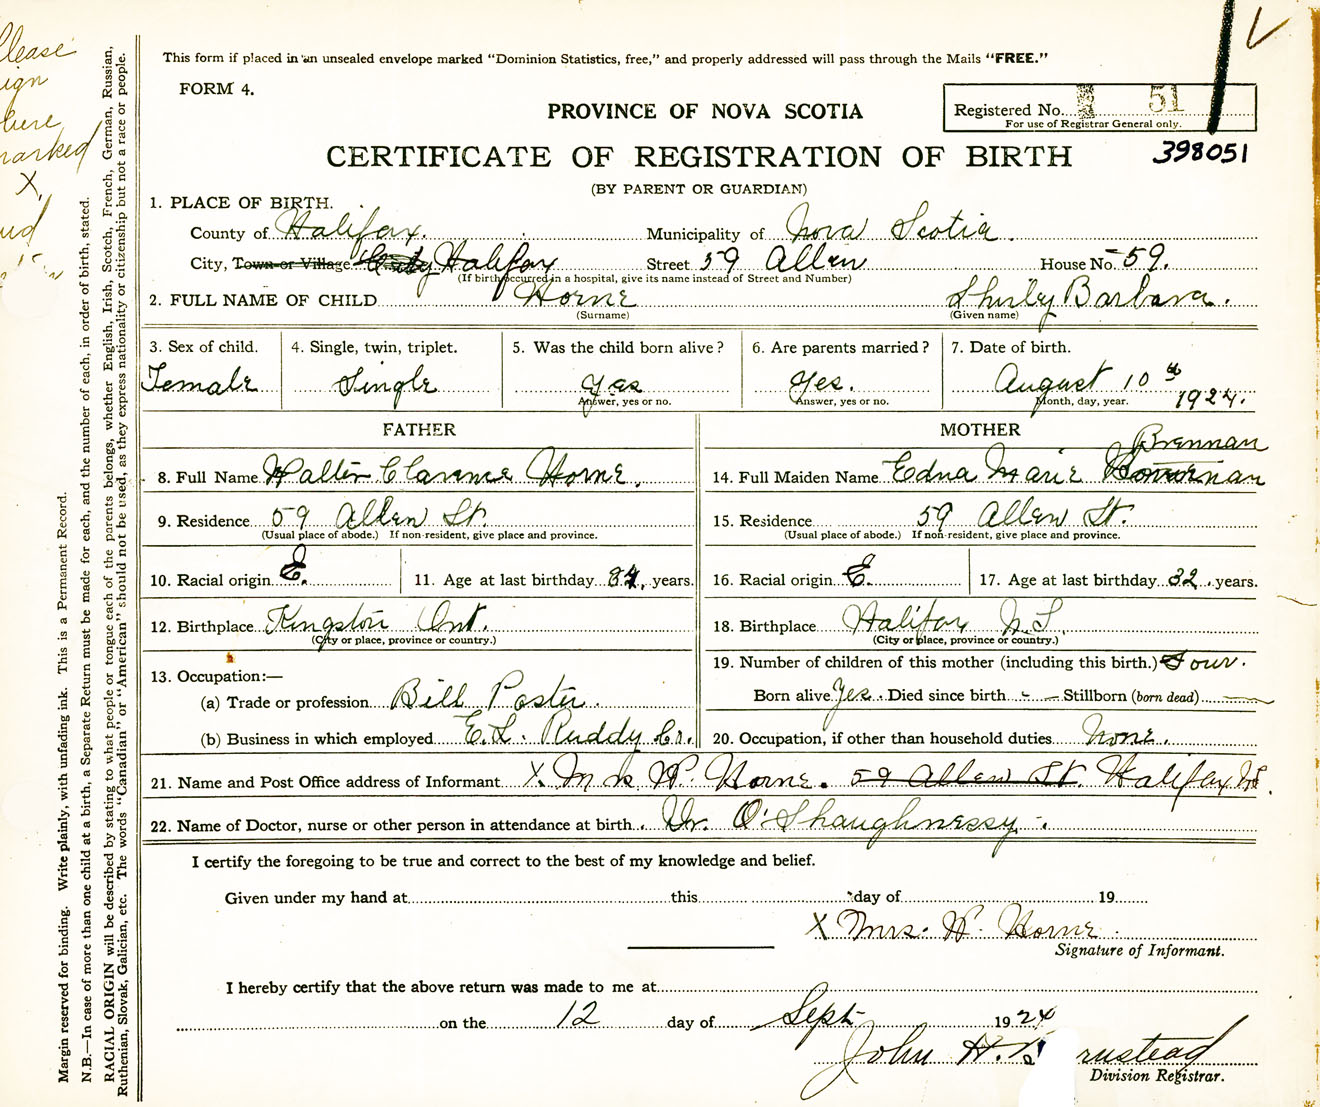 This form if placed in an unsealed envelope marked "Dominion Statistics, free," and properly addressed will pass through the Mails "FREE."
FORM 4.
PROVINCE OF NOVA SCOTIA
Registered No. 51
For use of Registrar General only.
398051
CERTIFICATE OF REGISTRATION OF BIRTH
(BY PARENT OR GUARDIAN)
1. PLACE OF BIRTH.
County of Halifax. Municipality of Nova Scotia.
City, Town or Village Halifax Street 59 Allen House No. 59.
(If birth occurred in a hospital, give its name instead of Street and Number)
2. FULL NAME OF CHILD Horne Shirley Barbara.
(Surname) (Given name)
3. Sex of child. 4. Single, twin, triplet. 5. Was the child born alive? 6. Are parents married? 7. Date of birth.
Female Single Yes Yes. August 10th
Answer, yes or no. Answer, yes or no. Month, day, year. 1924.
FATHER MOTHER
Brennan
8. Full Name Walter Clarence Horne. 14. Full Maiden Name Edna Marie
9. Residence 59 Allen St. 15. Residence 59 Allen St.
(Usual place of abode.) If non-resident, give place and province. (Usual place of abode.) If non-resident, give place and province.
10. Racial origin E. 11. Age at last birthday years. 16. Racial origin E. 17. Age at last birthday 32 years.
12. Birthplace Kingston Ont. 18. Birthplace Halifax N.S.
(City or place, province or country.) (City or place, province or country.)
13. Occupation:— 19. Number of children of this mother (including this birth.) Four.
(a) Trade or profession Bill Poster. Born alive Yes. Died since birth - Stillborn (born dead) —
(b) Business in which employed E.L. Ruddy Co. 20. Occupation, if other than household duties None.
21. Name and Post Office address of Informant X Mrs W. Horne. 59 Allen St. Halifax N.S.
22. Name of Doctor, nurse or other person in attendance at birth. Dr. O'Shaughnessy.
I certify the foregoing to be true and correct to the best of my knowledge and belief.
Given under my hand at this day of 19
X Mrs. W. Horne.
Signature of Informant.
I hereby certify that the above return was made to me at
on the 12 day of Sept 1924
John H.
Division Registrar.
Please
sign
here
marked
X,
and
Margin reserved for binding. Write plainly, with unfading ink. This is a Permanent Record.
N.B.—In case of more than one child at a birth, a Separate Return must be made for each, and the number of each, in order of birth, stated.
RACIAL ORIGIN will be described by stating to what people or tongue each of the parents belongs, whether English, Irish, Scotch, French, German, Russian,
Ruthenian, Slovak, Galician, etc. The words "Canadian" or "American" should not be used, as they express nationality or citizenship but not a race or people.